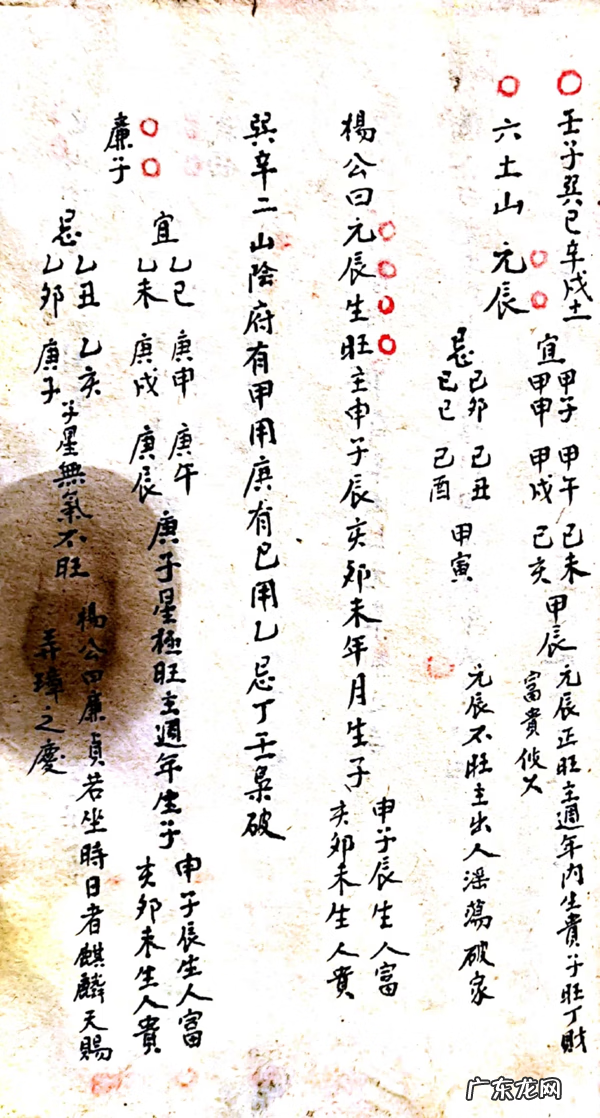 壬子巽巳辛戌土
六土山 元辰
宜 甲子 甲午 己未
甲申 甲戌 己亥 甲辰
元辰正旺主週年內生貴子旺丁財
富貴攸久
忌 己卯 己丑
己巳 己酉 甲寅
元辰不旺主出人淫蕩破家
楊公曰元辰生旺主申子辰亥卯未年月生子
申子辰生人富
亥卯未生人貴
巽辛二山陰府有甲用庚有己用乙忌丁壬梟破
廉子
宜 乙巳 庚申 庚午
乙未 庚戌 庚辰
庚子星極旺主週年生子
申子辰生人富
亥卯未生人貴
忌 乙丑 乙亥
乙卯 庚子
子星無氣不旺
楊公曰廉貞若坐時日者麒麟天賜
弄璋之慶
广东龙网